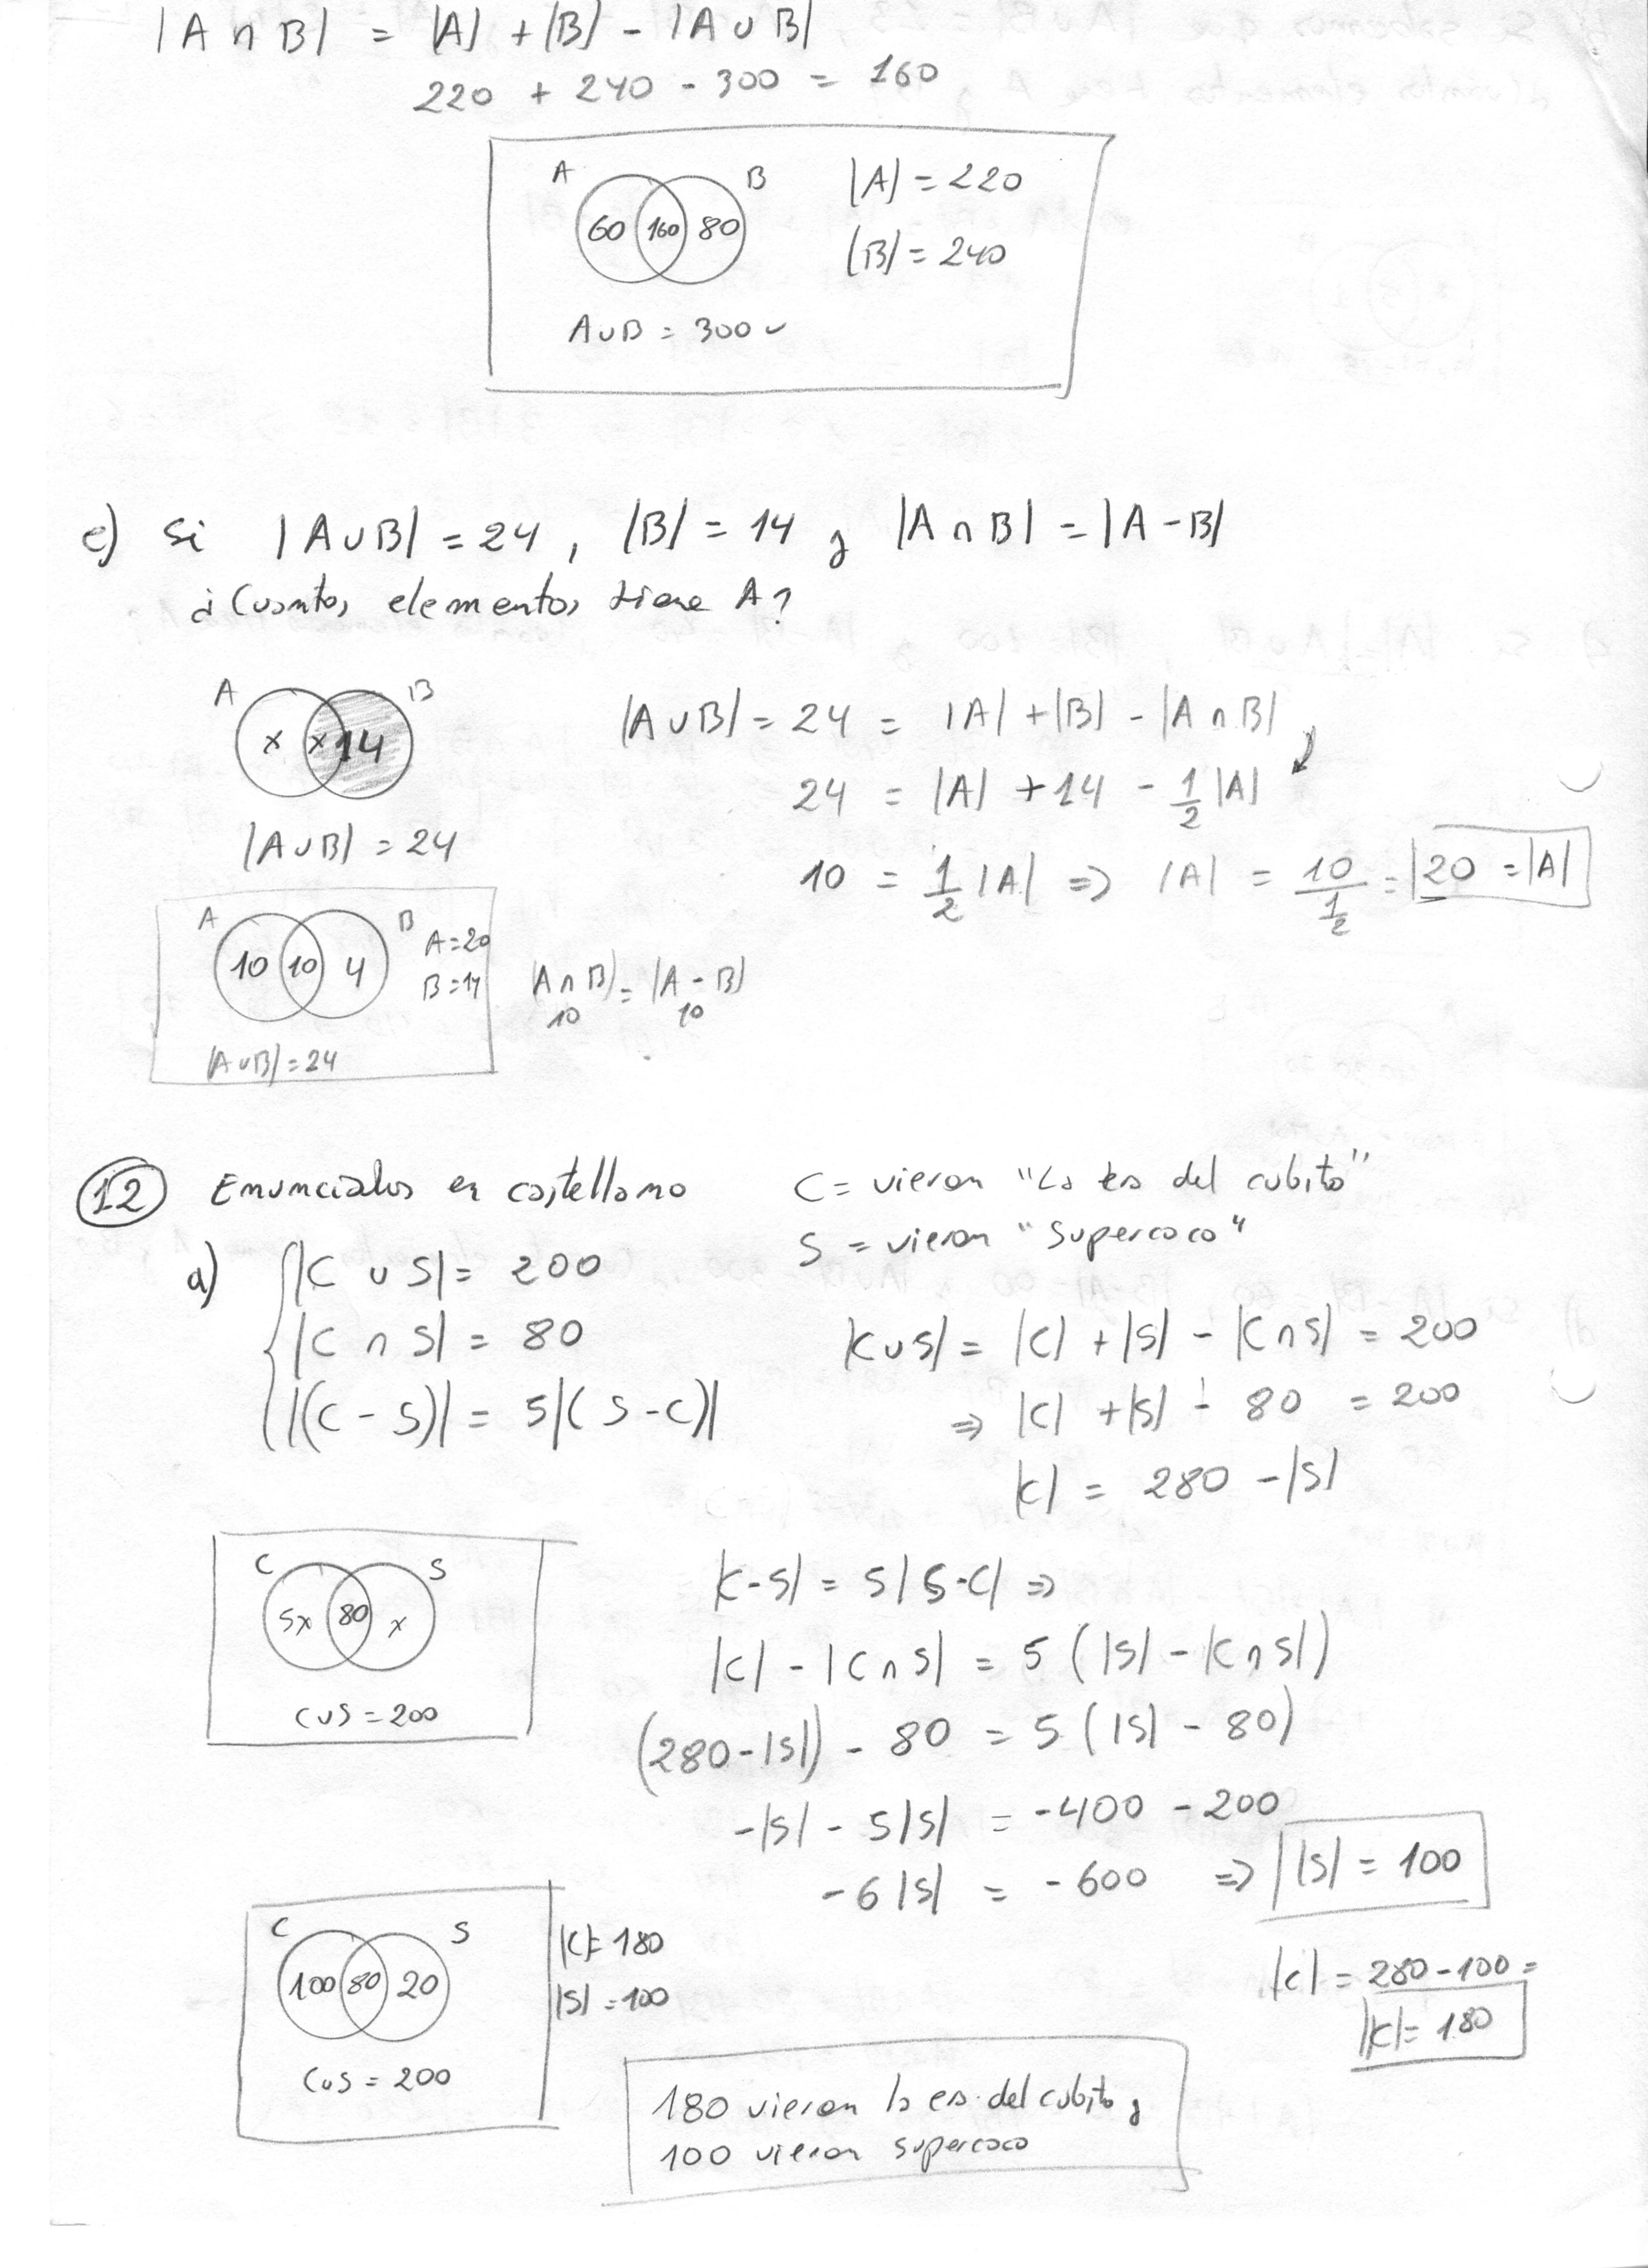 |A ∩ B| = |A| + |B| - |A ∪ B|
220 + 240 - 300 = 160
A B |A| = 220
60 160 80 |B| = 240
A∪B = 300 ✓
e) Si |A∪B| = 24, |B| = 14 y |A ∩ B| = |A - B|
¿Cuantos elementos tiene A?
A B
x x 14
|A∪B| = 24
|A∪B| = 24 = |A| + |B| - |A ∩ B|
24 = |A| + 14 - 1/2 |A|
10 = 1/2 |A| ⇒ |A| = 10/(1/2) = |20 = |A|
A B A=20
10 10 4 B=14
|A∪B| = 24
|A∩B| = |A - B|
10 10
12 Enunciados en castellano
C = vieron "La era del cubito"
S = vieron "Supercoco"
a) |C ∪ S| = 200
|C ∩ S| = 80
|(C - S)| = 5|(S - C)|
|C∪S| = |C| + |S| - |C∩S| = 200
⇒ |C| + |S| - 80 = 200
|C| = 280 - |S|
C S
5x 80 x
C∪S = 200
|C-S| = 5|S-C| ⇒
|C| - |C∩S| = 5(|S| - |C∩S|)
(280-|S|) - 80 = 5(|S| - 80)
-|S| - 5|S| = -400 - 200
-6|S| = -600 ⇒ |S| = 100
C S |C|= 180
100 80 20 |S| = 100
C∪S = 200
|C| = 280-100 =
|C| = 180
180 vieron la era del cubito y
100 vieron supercoco